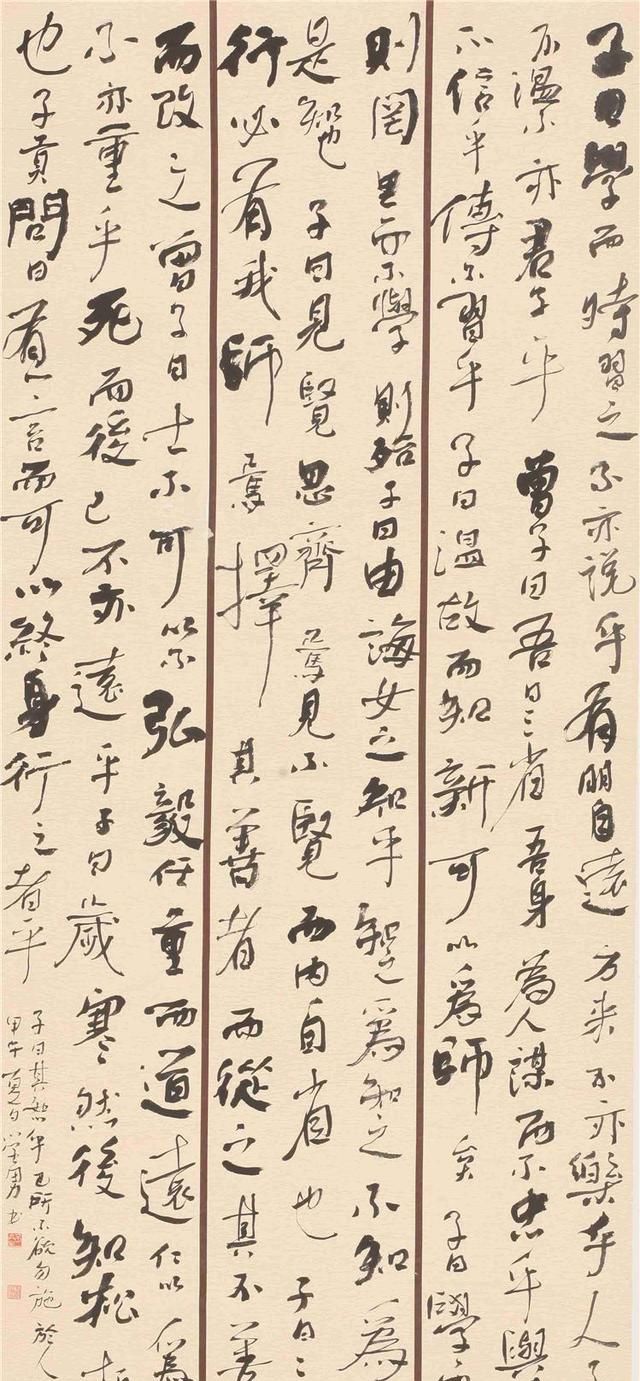 子曰學而時習之不亦説乎有朋自遠方来不亦樂乎人
不愠不亦君子乎曾子曰吾日三省吾身為人謀而不忠乎與
不信乎傳不習乎子曰温故而知新可以為師矣子曰學而
則罔思而不學則殆子曰由誨女之知乎知之為知之不知為
是知也子曰見賢思齊焉見不賢而内自省也子曰三
行必有我師焉擇其善者而從之其不善
而改之曾子曰士不可以不弘毅任重而道遠仁以為
不亦重乎死而後已不亦遠乎子曰歲寒然後知松
也子貢問曰有一言而可以終身行之者乎
子曰其恕乎己所不欲勿施於人
甲午夏日勇书